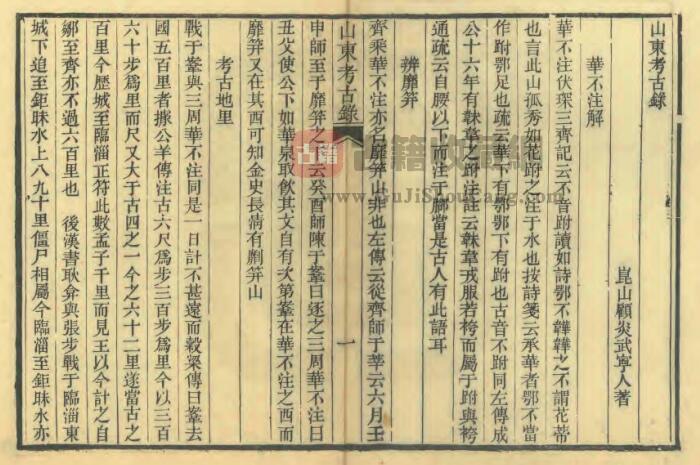 山東考古錄
崑山顧炎武寧人著
華不注解
華不注伏琛三齊記云不音跗讀如詩鄂不韡韡之不謂花蒂
也言此山孤秀如花跗之注于水也按詩箋云承華者鄂不當
作跗鄂足也疏云華下有鄂鄂下有跗也古音不跗同左傳成
公十六年有韎韋之跗注註云韎韋戎服若袴而屬于跗與袴
通疏云自腰以下而注于腳當是古人有此語耳
辨靡笄
齊乘華不注亦名靡笄山非也左傳云從齊師于莘云六月壬
山東考古錄
一
申師至于靡笄之下云癸酉師陳于鞌曰逐之三周華不注曰
丑父使公下如華泉取飲其文自有次第鞌在華不注之西而
靡笄又在其西可知金史長淸有劘笄山
考古地里
戰于鞌與三周華不注同是一日計不甚遠而穀梁傳曰鞌去
國五百里者據公羊傳注古六尺爲步三百步爲里今以三百
六十步爲里而尺又大于古四之一今之六十二里遂當古之
百里今歷城至臨淄正符此數孟子千里而見王以今計之自
鄒至齊亦不過六百里也 後漢書耿弇與張步戰于臨淄東
城下追至鉅昧水上八九十里僵尸相屬今臨淄至鉅昧水亦
古籍
古籍收藏網
www.GuJiShouCang.com